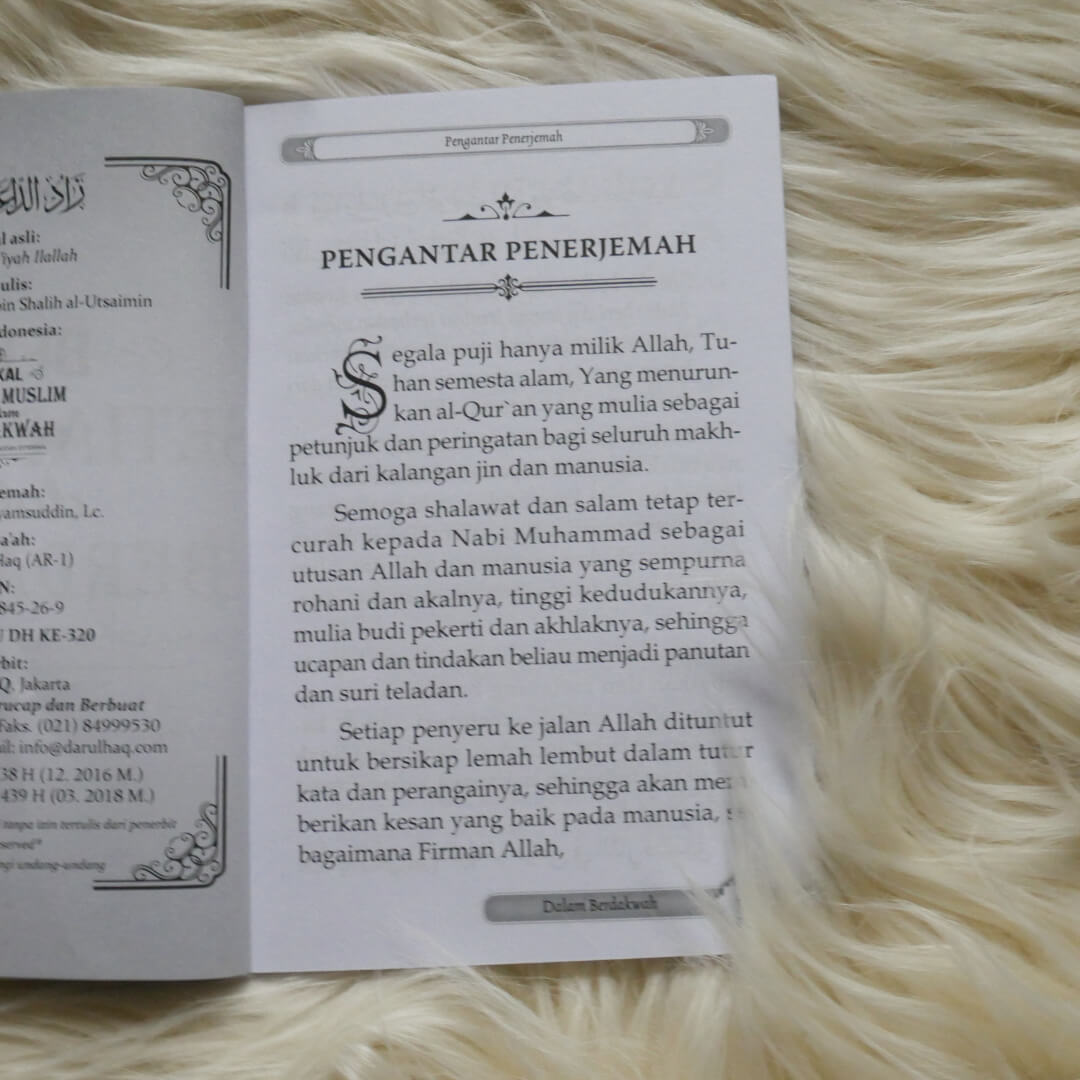 زَادُ
l asli:
iyah Ilallah
ulis:
bin Shalih al-Utsaimin
donesia:
KAL
MUSLIM
KWAH
emah:
yamsuddin, Lc.
a'ah:
Haq (AR-1)
N:
845-26-9
DH KE-320
bit:
Q, Jakarta
rucap dan Berbuat
Faks. (021) 84999530
il: info@darulhaq.com
38 H (12. 2016 M.)
439 H (03. 2018 M.)
tanpa izin tertulis dari penerbit
served"
ngi undang-undang
Pengantar Penerjemah
PENGANTAR PENERJEMAH
Segala puji hanya milik Allah, Tu-
han semesta alam, Yang menurun-
kan al-Qur`an yang mulia sebagai
petunjuk dan peringatan bagi seluruh makh-
luk dari kalangan jin dan manusia.
Semoga shalawat dan salam tetap ter-
curah kepada Nabi Muhammad sebagai
utusan Allah dan manusia yang sempurna
rohani dan akalnya, tinggi kedudukannya,
mulia budi pekerti dan akhlaknya, sehingga
ucapan dan tindakan beliau menjadi panutan
dan suri teladan.
Setiap penyeru ke jalan Allah dituntut
untuk bersikap lemah lembut dalam tutur
kata dan perangainya, sehingga akan mem-
berikan kesan yang baik pada manusia, se-
bagaimana Firman Allah,
Dalam Berdakwah